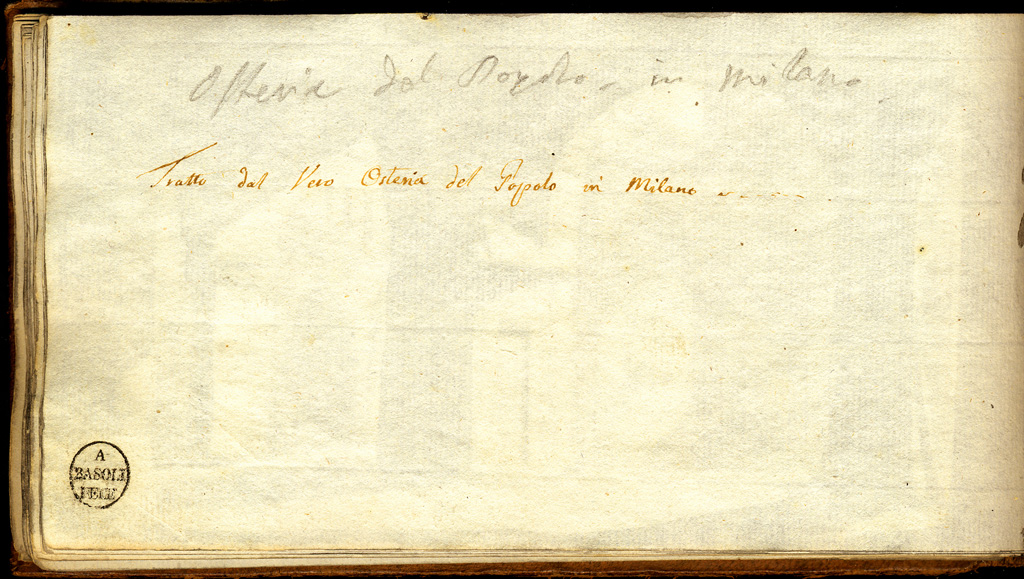 Osteria del Popolo in Milano
Tratto dal Vero Osteria del Popolo in Milano
A
BASOLI
FECE